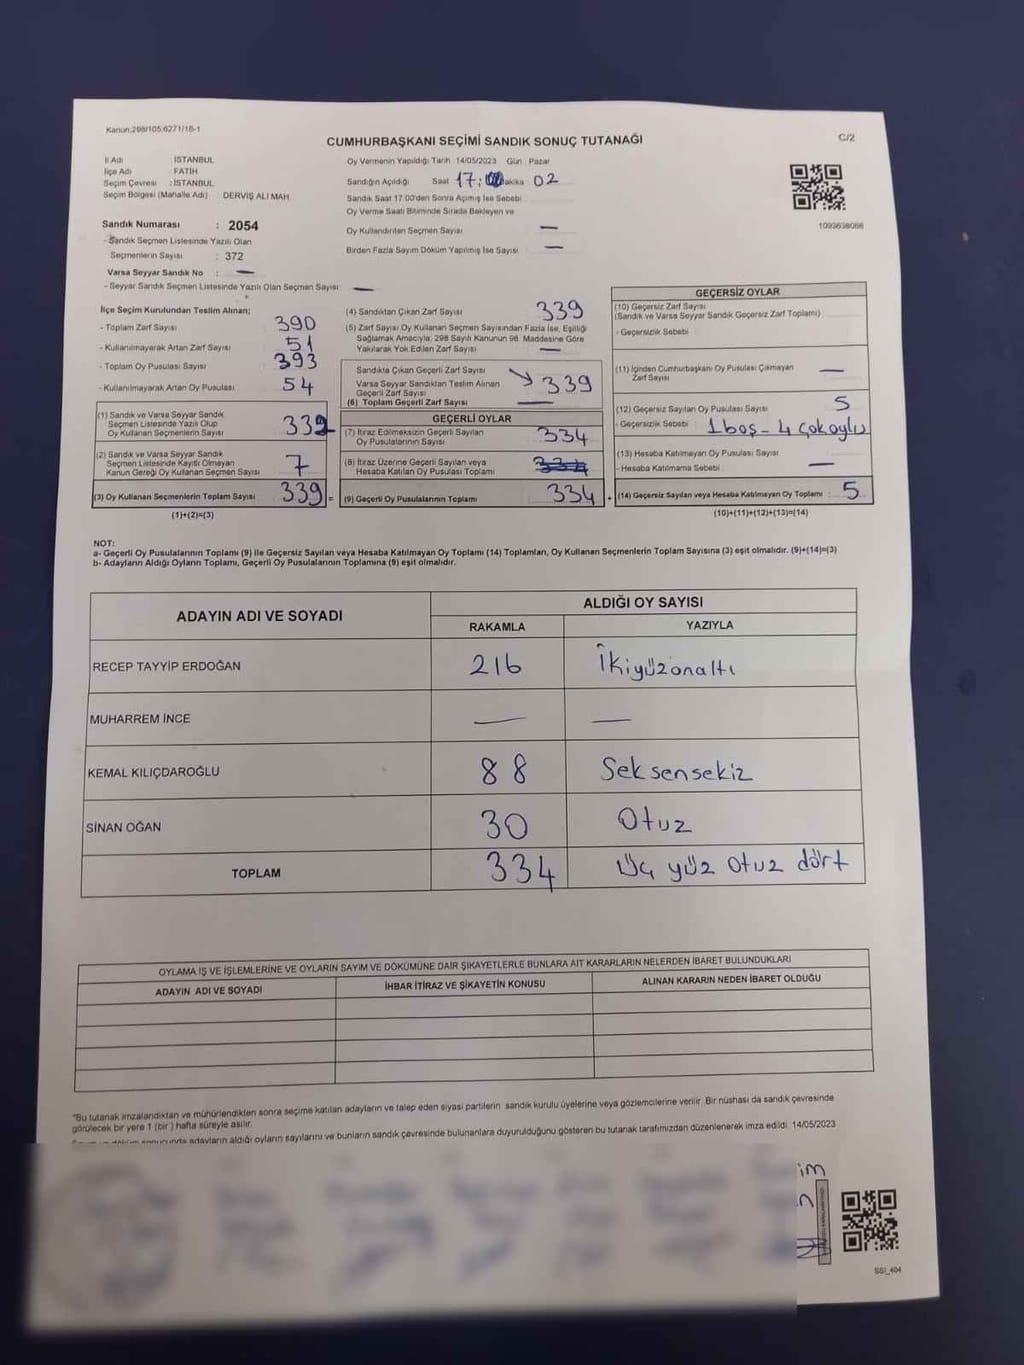 Kanun:298/105,6271/18-1
C/2
CUMHURBAŞKANI SEÇİMİ SANDIK SONUÇ TUTANAĞI
İl Adı İSTANBUL
İlçe Adı FATİH
Seçim Çevresi : İSTANBUL
Seçim Bölgesi (Mahalle Adı) DERVİŞ ALİ MAH.
Oy Vermenin Yapıldığı Tarih 14/05/2023 Gün : Pazar
Sandığın Açıldığı Saat 17: Dakika 02
Sandık Saat 17.00'den Sonra Açılmış İse Sebebi
Oy Verme Saati Bitiminde Sırada Bekleyen ve
Oy Kullandırılan Seçmen Sayısı —
Birden Fazla Sayım Döküm Yapılmış İse Sayısı —
1093638068
Sandık Numarası : 2054
- Sandık Seçmen Listesinde Yazılı Olan
Seçmenlerin Sayısı : 372
Varsa Seyyar Sandık No : —
- Seyyar Sandık Seçmen Listesinde Yazılı Olan Seçmen Sayısı —
İlçe Seçim Kurulundan Teslim Alınan;
- Toplam Zarf Sayısı 390
- Kullanılmayarak Artan Zarf Sayısı 51
- Toplam Oy Pusulası Sayısı 393
- Kullanılmayarak Artan Oy Pusulası 54
(1) Sandık ve Varsa Seyyar Sandık
Seçmen Listesinde Yazılı Olup
Oy Kullanan Seçmenlerin Sayısı
(2) Sandık ve Varsa Seyyar Sandık
Seçmen Listesinde Kayıtlı Olmayan
Kanun Gereği Oy Kullanan Seçmen Sayısı 7
(3) Oy Kullanan Seçmenlerin Toplam Sayısı 339 =
(1)+(2)=(3)
(4) Sandıktan Çıkan Zarf Sayısı 339
(5) Zarf Sayısı Oy Kullanan Seçmen Sayısından Fazla İse, Eşitliği
Sağlamak Amacıyla; 298 Sayılı Kanunun 98. Maddesine Göre
Yakılarak Yok Edilen Zarf Sayısı —
Sandıkta Çıkan Geçerli Zarf Sayısı
Varsa Seyyar Sandıktan Teslim Alınan
Geçerli Zarf Sayısı 339
(6) Toplam Geçerli Zarf Sayısı —
GEÇERLİ OYLAR
(7) İtiraz Edilmeksizin Geçerli Sayılan
Oy Pusulalarının Sayısı 334
(8) İtiraz Üzerine Geçerli Sayılan veya
Hesaba Katılan Oy Pusulası Toplamı 334
(9) Geçerli Oy Pusulalarının Toplamı 334 +
GEÇERSİZ OYLAR
(10) Geçersiz Zarf Sayısı
(Sandık ve Varsa Seyyar Sandık Geçersiz Zarf Toplamı)
- Geçersizlik Sebebi :
(11) İçinden Cumhurbaşkanı Oy Pusulası Çıkmayan
Zarf Sayısı —
(12) Geçersiz Sayılan Oy Pusulası Sayısı 5
- Geçersizlik Sebebi : 1 boş - 4 çok oylu
(13) Hesaba Katılmayan Oy Pusulası Sayısı
- Hesaba Katılmama Sebebi : —
(14) Geçersiz Sayılan veya Hesaba Katılmayan Oy Toplamı : 5
(10)+(11)+(12)+(13)=(14)
NOT:
a- Geçerli Oy Pusulalarının Toplamı (9) ile Geçersiz Sayılan veya Hesaba Katılmayan Oy Toplamı (14) Toplamları, Oy Kullanan Seçmenlerin Toplam Sayısına (3) eşit olmalıdır. (9)+(14)=(3)
b- Adayların Aldığı Oyların Toplamı, Geçerli Oy Pusulalarının Toplamına (9) eşit olmalıdır.
ADAYIN ADI VE SOYADI
ALDIĞI OY SAYISI
RAKAMLA YAZIYLA
RECEP TAYYİP ERDOĞAN 216 İkiyüzonaltı
MUHARREM İNCE — —
KEMAL KILIÇDAROĞLU 88 Seksensekiz
SİNAN OĞAN 30 Otuz
TOPLAM 334 Üç yüz otuz dört
OYLAMA İŞ VE İŞLEMLERİNE VE OYLARIN SAYIM VE DÖKÜMÜNE DAİR ŞİKAYETLERLE BUNLARA AİT KARARLARIN NELERDEN İBARET BULUNDUKLARI
ADAYIN ADI VE SOYADI İHBAR İTİRAZ VE ŞİKAYETİN KONUSU ALINAN KARARIN NEDEN İBARET OLDUĞU
*Bu tutanak imzalandıktan ve mühürlendikten sonra seçime katılan adayların ve talep eden siyasi partilerin sandık kurulu üyelerine veya gözlemcilerine verilir. Bir nüshası da sandık çevresinde
görülecek bir yere 1 (bir) hafta süreyle asılır.
adayların aldığı oyların sayılarını ve bunların sandık çevresinde bulunanlara duyurulduğunu gösteren bu tutanak tarafımızdan düzenlenerek imza edildi. 14/05/2023
im
SSI_404